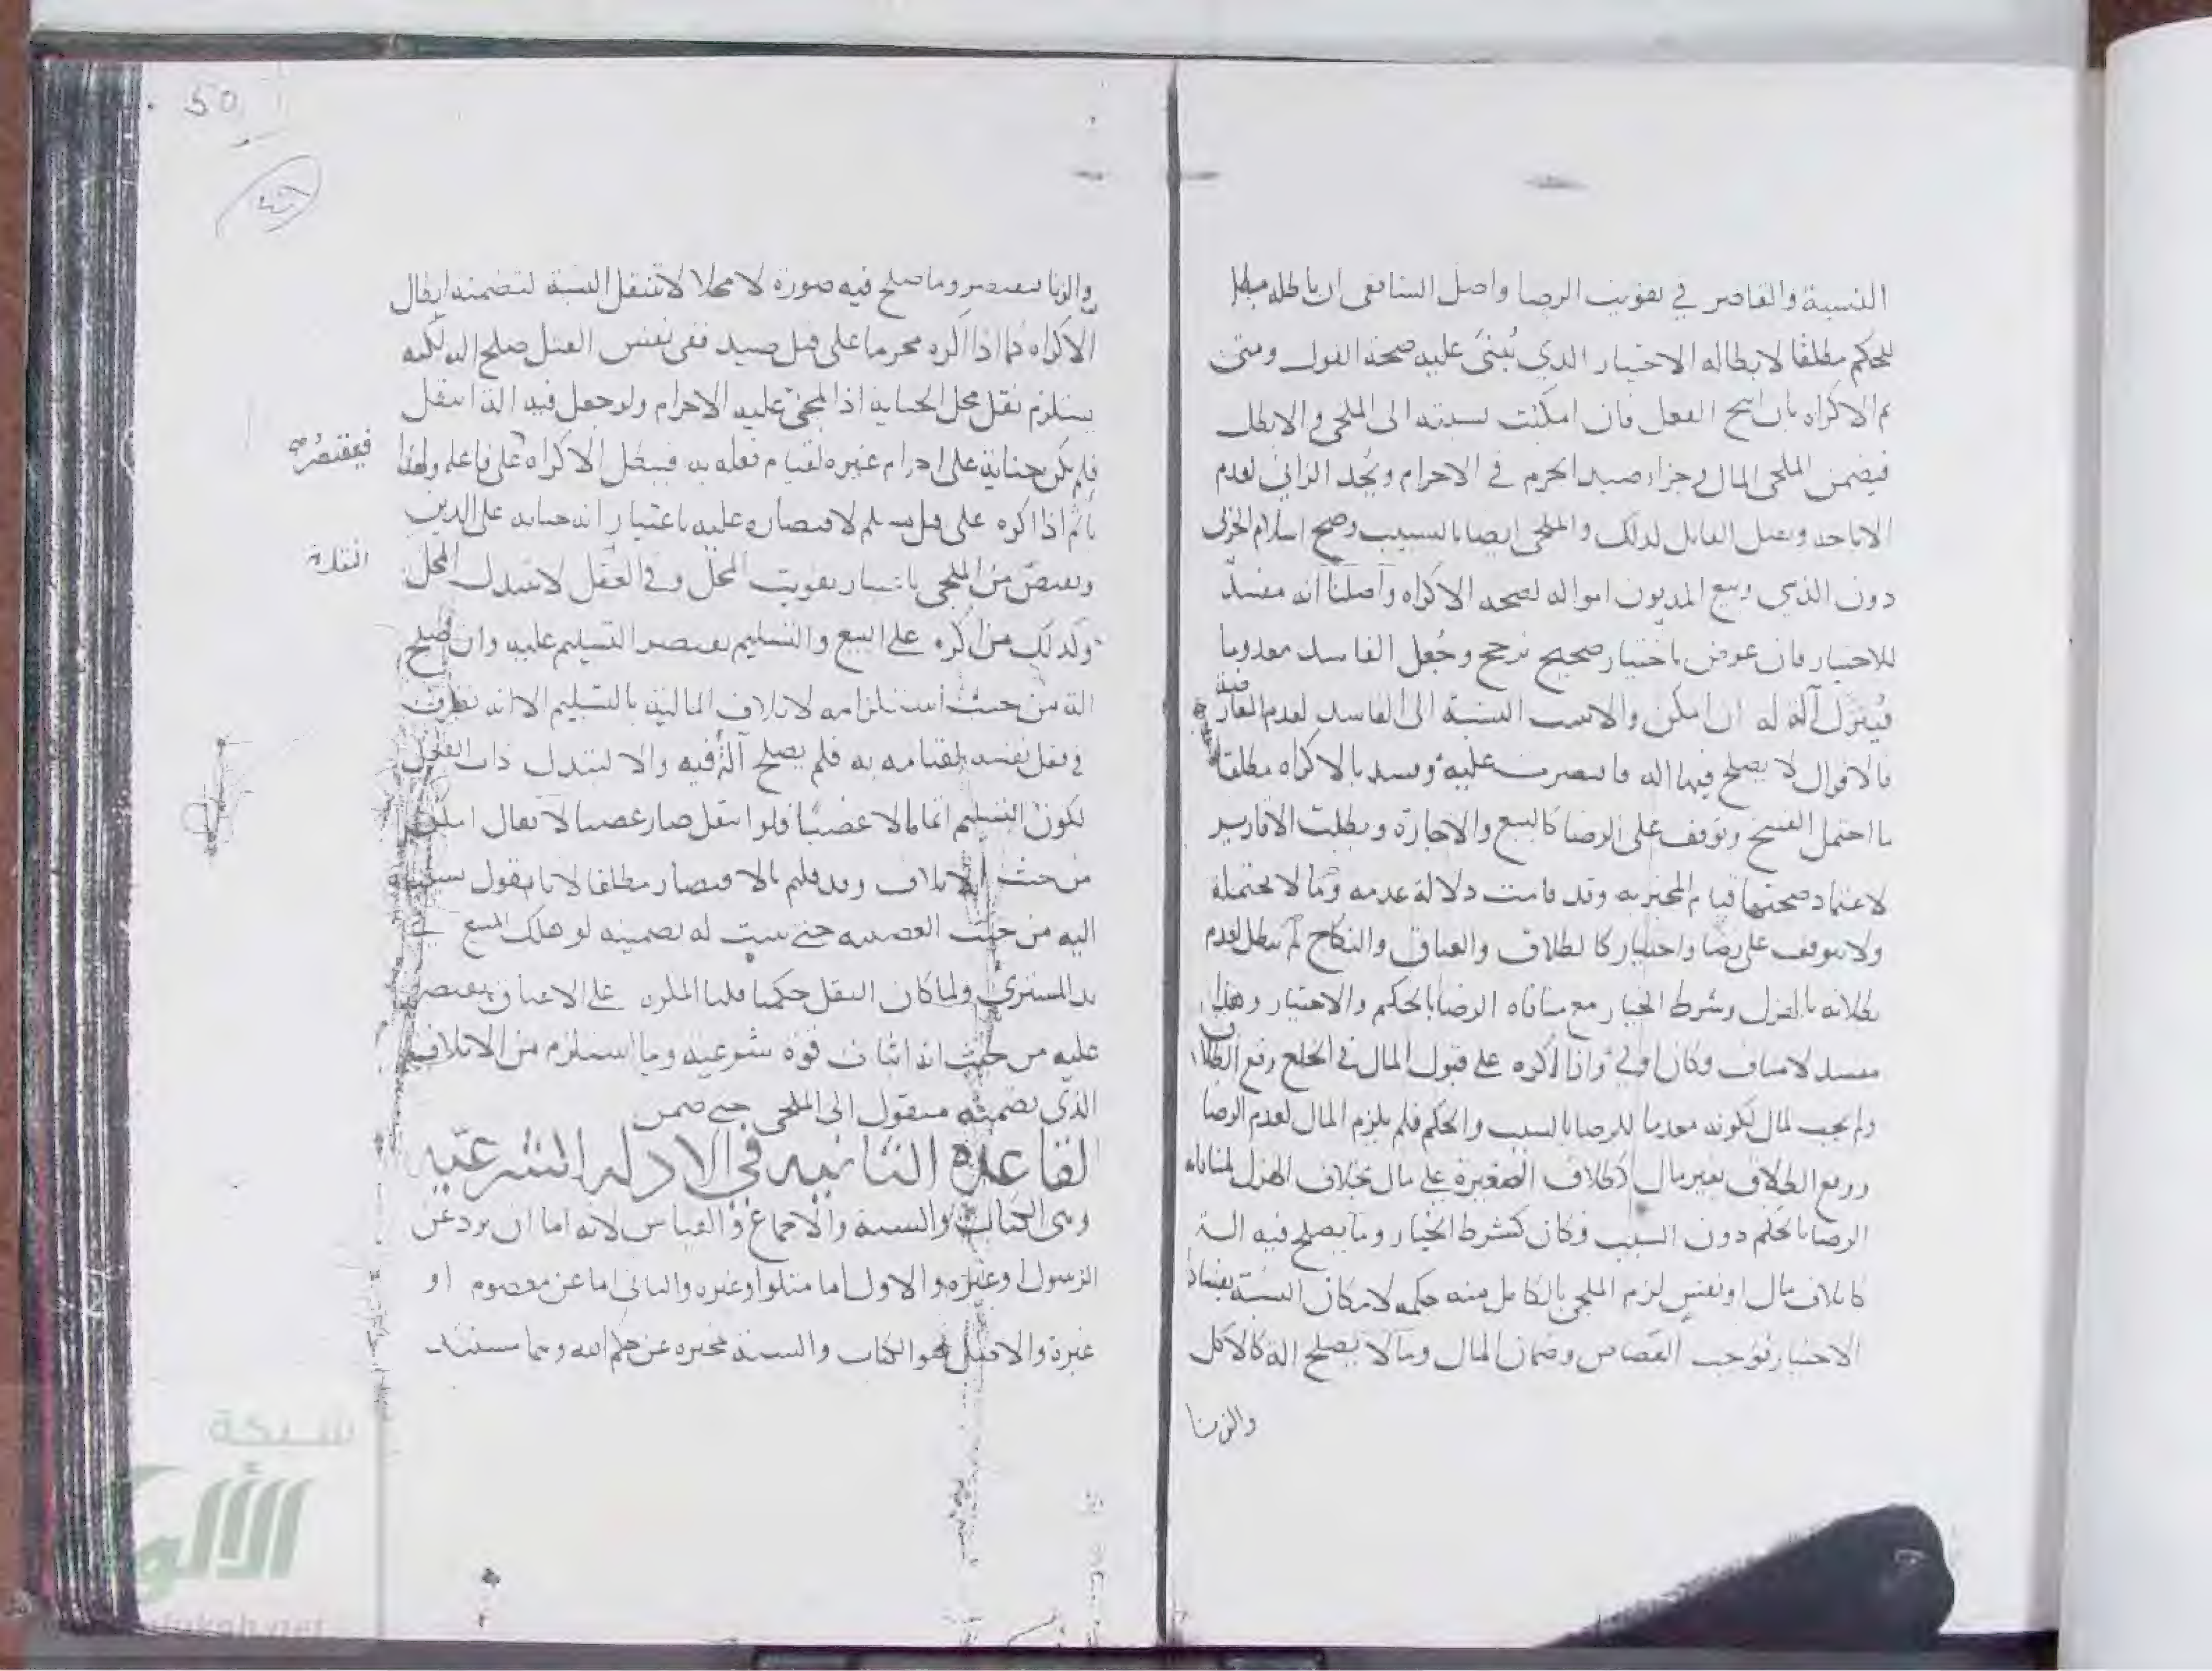 النسبة والقاصر في تفويت الرضا واصل الشافعي ان باطله مبطل
للحكم مطلقا لابطاله الاختيار الذي يُبتنى عليه صحة القول ومتى
تم الاكراه بان ابيح الفعل فان امكنت نسبته الى الملجي والا بطل
فيضمن الملجى المال وجزاء صيد الحرم في الاحرام ويُحد الزاني لعدم
الاباحه ويقتل القاتل لذلك والملجى ايضا بالتسبيب وصح اسلام الحربي
دون الذمي وبيع المديون امواله لصحه الاكراه واصلنا انه مفسد
للاختيار فان عورض باختيار صحيح ترجح وجُعل الفاسد معدوما
فيُنزل آلة له ان امكن والا نسب النسبة الى الفاسد لعدم
فالاقوال لا يصلح فيها اله فاقتصرت عليه وفسد بالاكراه مطلقا
ما احتمل الفسخ وتوقف على الرضا كالبيع والاجارة وبطلت الاقارير
لاعتماد صحتها قيام المخبر به وقد قامت دلالة عدمه وما لا يحتمله
ولا يتوقف على رضا واختيار كالطلاق والعتاق والنكاح لم يبطل لعدم
بطلانه بالهزل وشرط الخيار مع منافاه الرضا بالحكم والاختيار وهذا
مفسد لا مناف وكان اولى واذا اكره على قبول المال في الخلع وقع الطلاق
ولم يجب المال لكونه معدما للرضا بالسبب والحكم فلم يلزم المال لعدم الرضا
ووقع الطلاق بغير مال كطلاق الصغيرة على مال بخلاف الهزل لمنافاته
الرضا بالحكم دون السبب وكان كشرط الخيار وما يصلح فيه الة
كاتلاف مال او نفس لزم الملجى بالكامل منه حكمه لامكان النسبة بفساد
الاختيار فوجب القصاص وضمان المال وما لا يصلح الة كالاكل
والزنا
50
والزنا فيقتصر وما صلح فيه صورة لا محلا لا تنتقل النسبة لتضمنه ابطال
الاكراه كما اذا اكره محرما على قتل صيد ففي نفس القتل صلح اله لكنه
يستلزم نقل محل الجناية اذ المجني عليه الاحرام ولو جعل فيه الة انتقل
فلم يكن جناية على احرام غيره لقيام فعله به فيبطل الاكراه على فاعله ولهذا
فيقتصر
ياثم اذا اكره على قتل مسلم لاقتصاره عليه باعتبار انه جنايه على الدين
ويقتص من الملجى باعتبار تفويت المحل وفي النقل لا تبدل المحل
وكذلك من اكره على البيع والتسليم يقتصر التسليم عليه وان صلح
الة من حيث استلزامه لاتلاف المالية بالتسليم الا انه تصرف
في فعل نفسه لقيامه به فلم يصلح آلة فيه والا لتبدل ذات الفعل
لكون التسليم اتماما لا غصبا فلو انتقل صار غصبا لا يقال امكن
من حيث الاتلاف وقد قلتم بالاقتصار مطلقا لانا نقول نسب
اليه من حيث الغصبيه حتى يثبت له تضمينه لو هلك المبيع في
يد المشتري ولما كان النقل حكميا قلنا المكره على الاعتاق يقتصر
عليه من حيث انه اثبات قوة شرعيه وما استلزم من الاتلاف
الذي تضمنه منقول الى الملجى حتى ضمن
القاعدة الثانيه في الادله الشرعيه
وهى الكتاب والسنة والاجماع والقياس لانه اما ان يرد عن
الرسول او غيره والاول اما متلوا او غيره والثاني اما عن معصوم او
غيرة والاصل هو الكتاب والسنة مخبرة عن حكم الله وهما مستند
شبكة
الألوكة